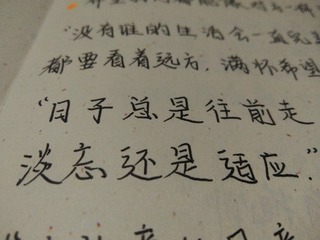 "没有谁的生活会一直完美
都要看着远方，满怀希望
"日子总是往前走
淡忘还是适应."